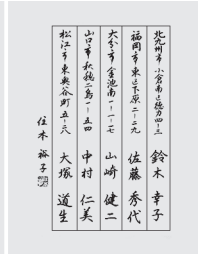 北九州市小倉南区徳力四ー三
鈴木 幸子
福岡市東区下原二ー二九
佐藤 秀代
大分市金池南一ー一ー七
山崎 健二
山口市秋穂二島一ー五四
中村 仁美
松江市東奥谷町五ー六八
大塚 道生
住本 裕子